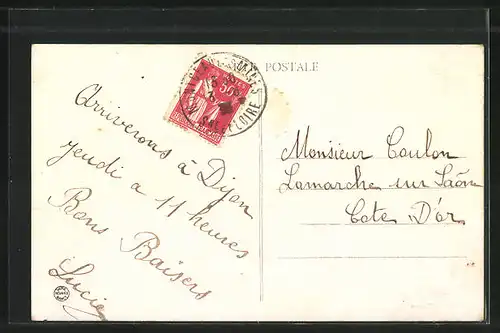 POSTALE
50c
ET LOIRE
Arriverons à Dijon
Jeudi a 11 heures
Bons Baisers
Lucie
Monsieur Coulon
Lamarche sur Saône
Cote D'or